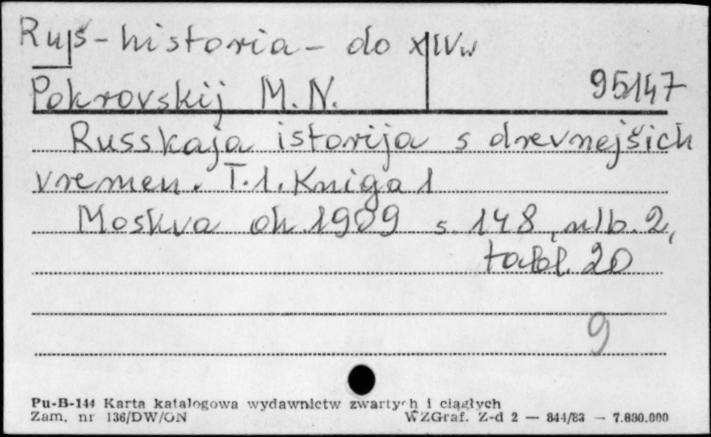 Ruś - historia - do XIVw
Pokrovskij M. N. 95147
Russkaja istorija s drevnejšich
vremen. T.1. Kniga 1
Moskva ok. 1909 s. 148, nlb. 2,
tabl. 20
9
Pu-B-144 Karta katalogowa wydawnictw zwartych i ciągłych
Zam. nr 136/DW/ON WZGraf. Z-d 2 — 844/83 — 7.830.000